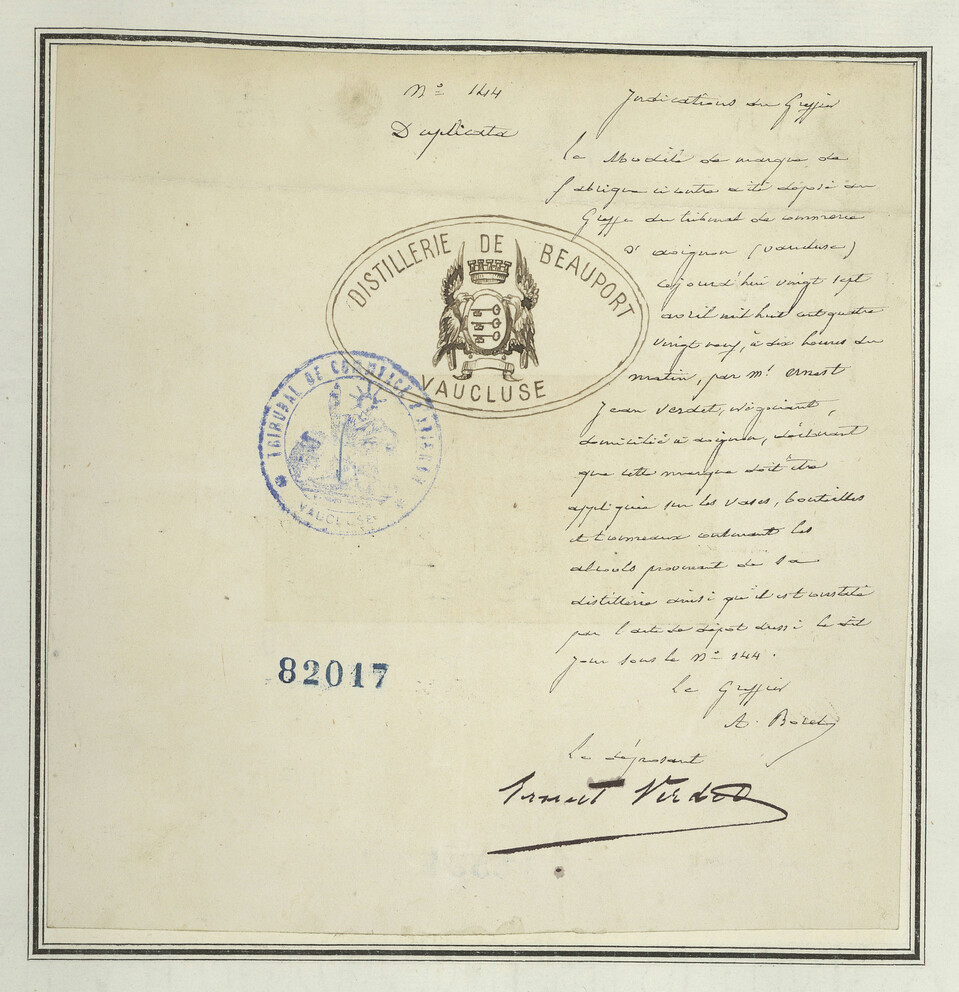 Nº 144
Duplicata
Indications du Greffier
Le Modèle de marque de
fabrique ci contre a été déposé au
Greffe du tribunal de commerce
d'avignon (vaucluse)
cejourd'hui vingt sept
avril mil huit cent quatre
vingt neuf, à dix heures du
matin, par Mr. ernest
Jean Verdet, négociant,
domicilié à avignon, déclarant
que cette marque doit être
appliquée sur les vases, bouteilles
et tonneaux contenant les
alcools provenant de sa
distillerie ainsi qu'il est constaté
par l'acte de dépôt dressé le dit
jour sous le Nº 144.
Le Greffier
A.
Le déposant
Ernest Verdet
DISTILLERIE DE BEAUPORT
VAUCLUSE
TRIBUNAL DE COMMERCE D'AVIGNON
VAUCLUSE
82017